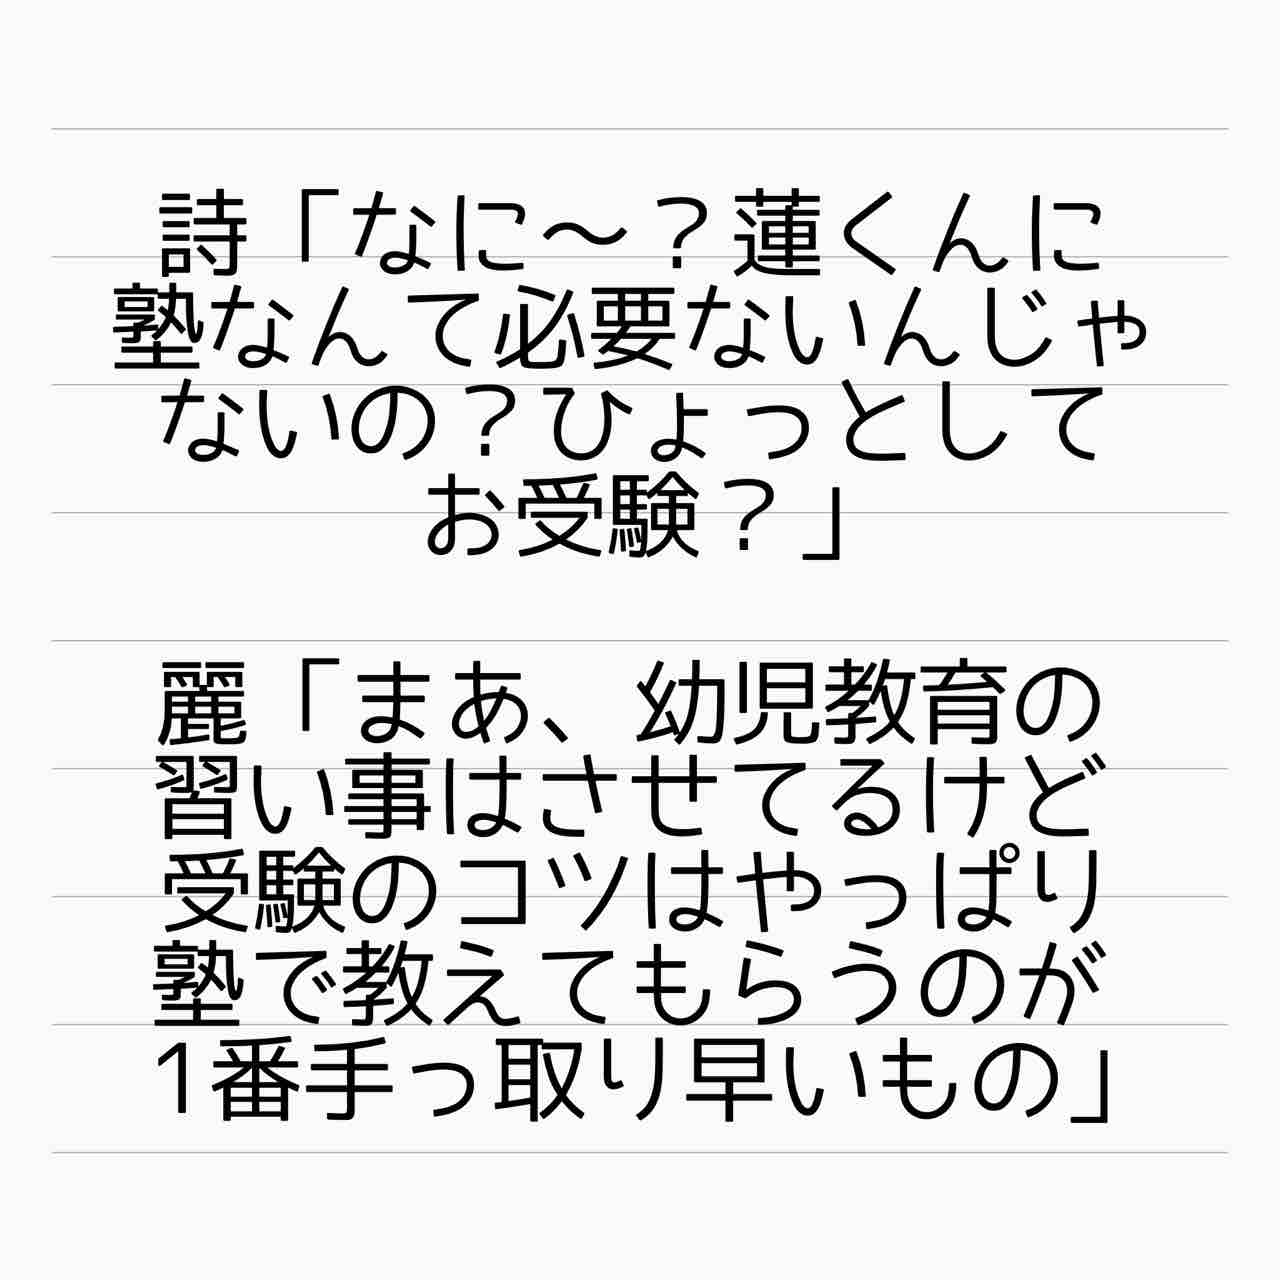 詩「なに〜？蓮くんに
塾なんて必要ないんじゃ
ないの？ひょっとして
お受験？」
麗「まあ、幼児教育の
習い事はさせてるけど
受験のコツはやっぱり
塾で教えてもらうのが
1番手っ取り早いもの」